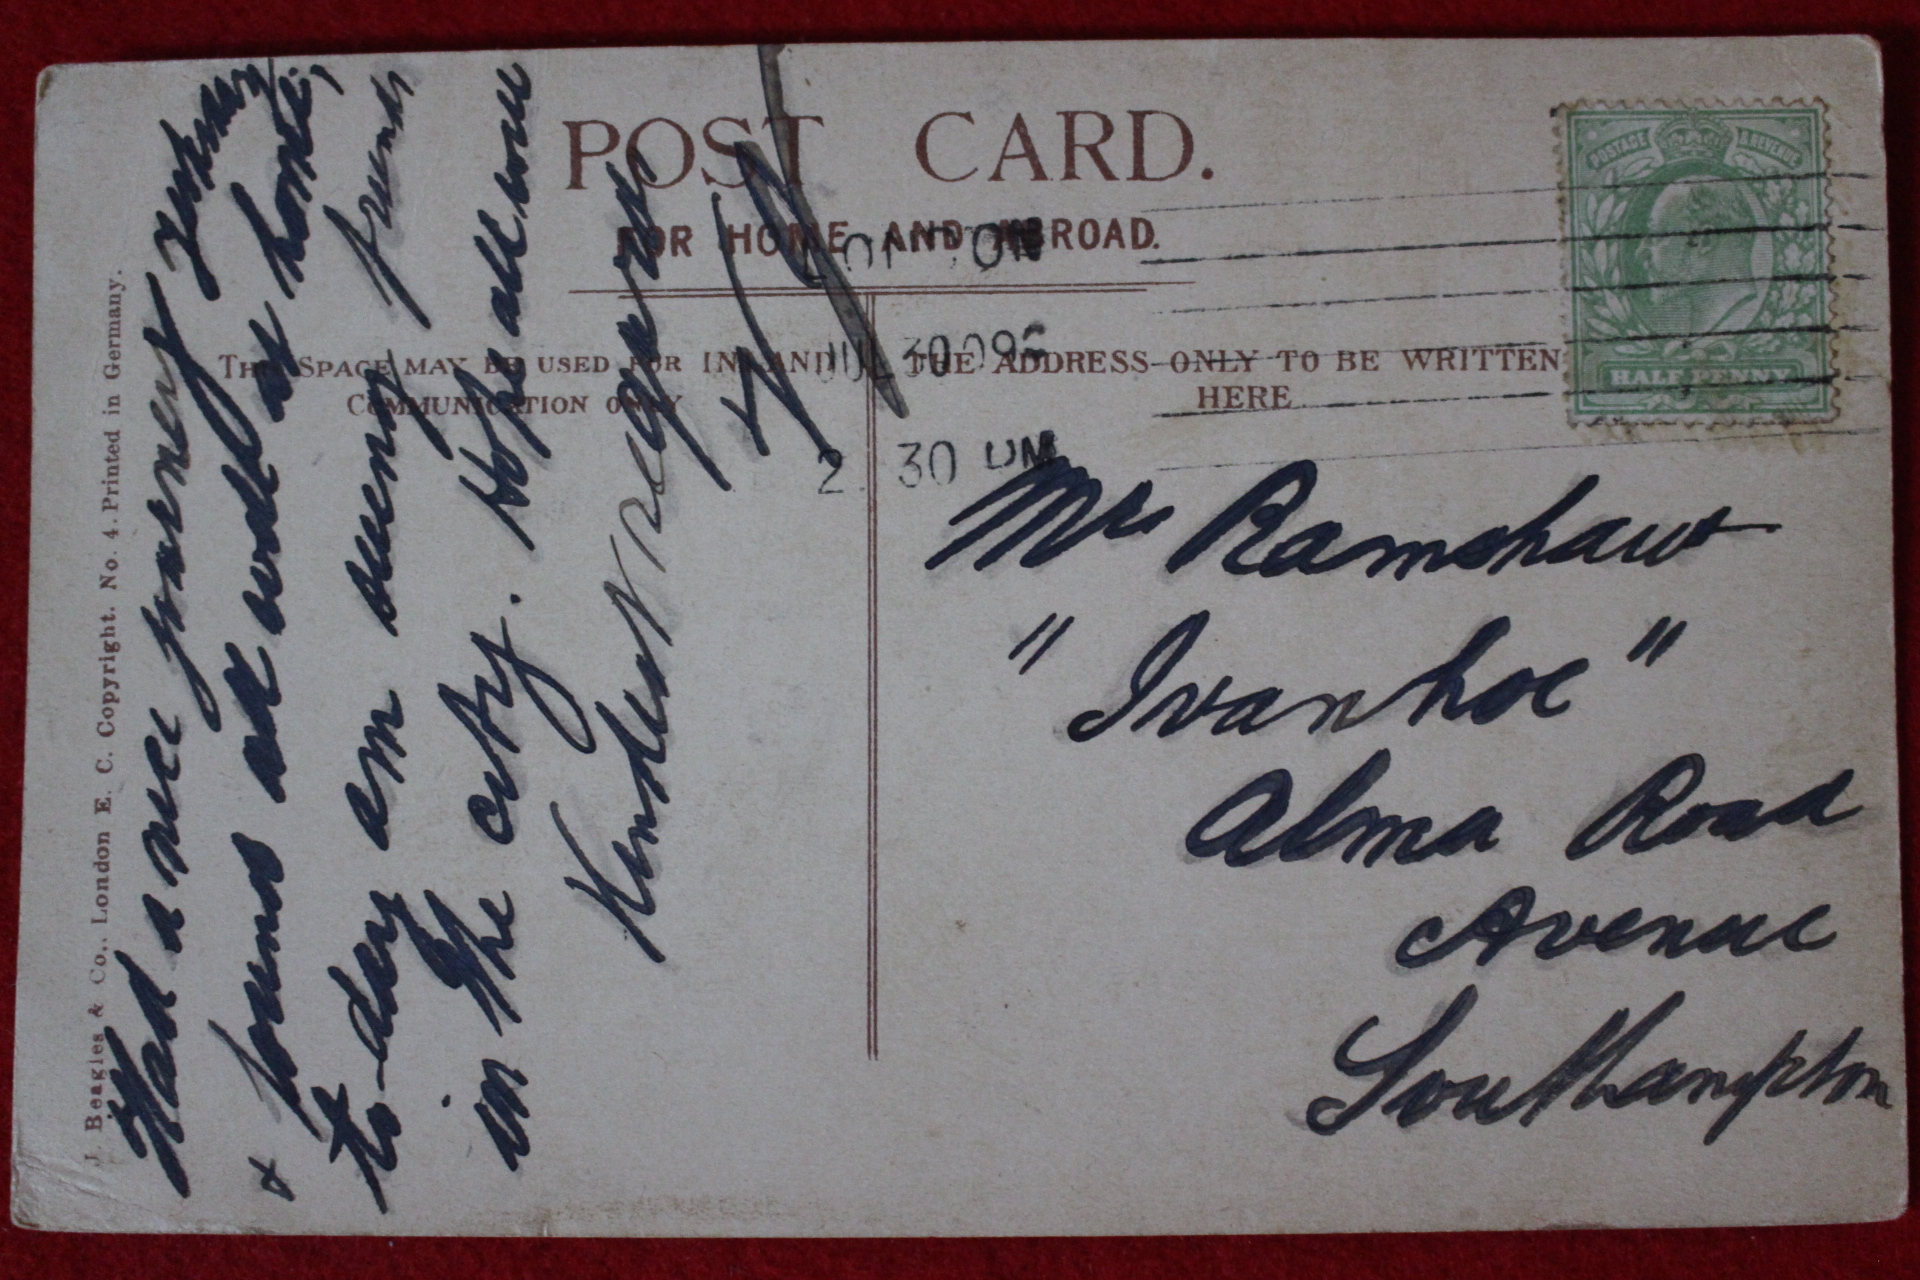 POST CARD.
FOR HOME AND ABROAD.
THIS SPACE MAY BE USED FOR INLAND
COMMUNICATION ONLY
THE ADDRESS ONLY TO BE WRITTEN
HERE
LONDON
JUL 30 09
2. 30 PM
POSTAGE & REVENUE
HALF PENNY
J. Beagles & Co., London E. C. Copyright. No. 4. Printed in Germany.
Had a nice journey yesterday
& found all well at home,
to-day am seeing friends
in the city. Hope all well
Kindest regards
Mr Ramshaw
"Ivanhoe"
Alma Road
Avenue
Southampton